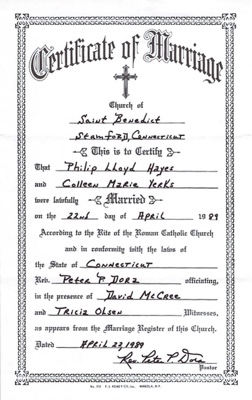 Certificate of Marriage
Church of
Saint Benedict
Stamford, Connecticut
This is to Certify
That Philip Lloyd Hayes
and Colleen Marie Yerks
were lawfully Married
on the 22nd day of April 1989
According to the Rite of the Roman Catholic Church
and in conformity with the laws of
the State of Connecticut
Rev. Peter P Dora officiating,
in the presence of David McCree
and Tricia Olsen Witnesses,
as appears from the Marriage Register of this Church.
Dated April 23, 1989
Rev. Peter P. Dora
Pastor